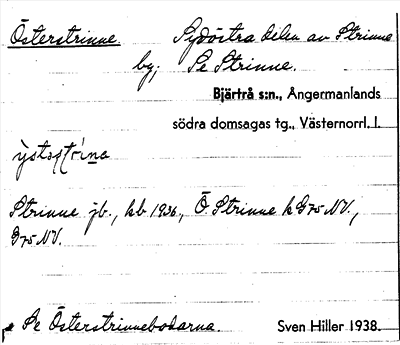 Österstrinne Sydöstra delen av Strinne
by; Se Strinne.
Bjärtrå s:n., Ångermanlands
södra domsagas tg., Västernorrl. l.
Strinne jb., kb 1936, Ö. Strinne k G75 NV.,
G75 NV.
Se Österstrinnebodarna. Sven Hiller 1938.